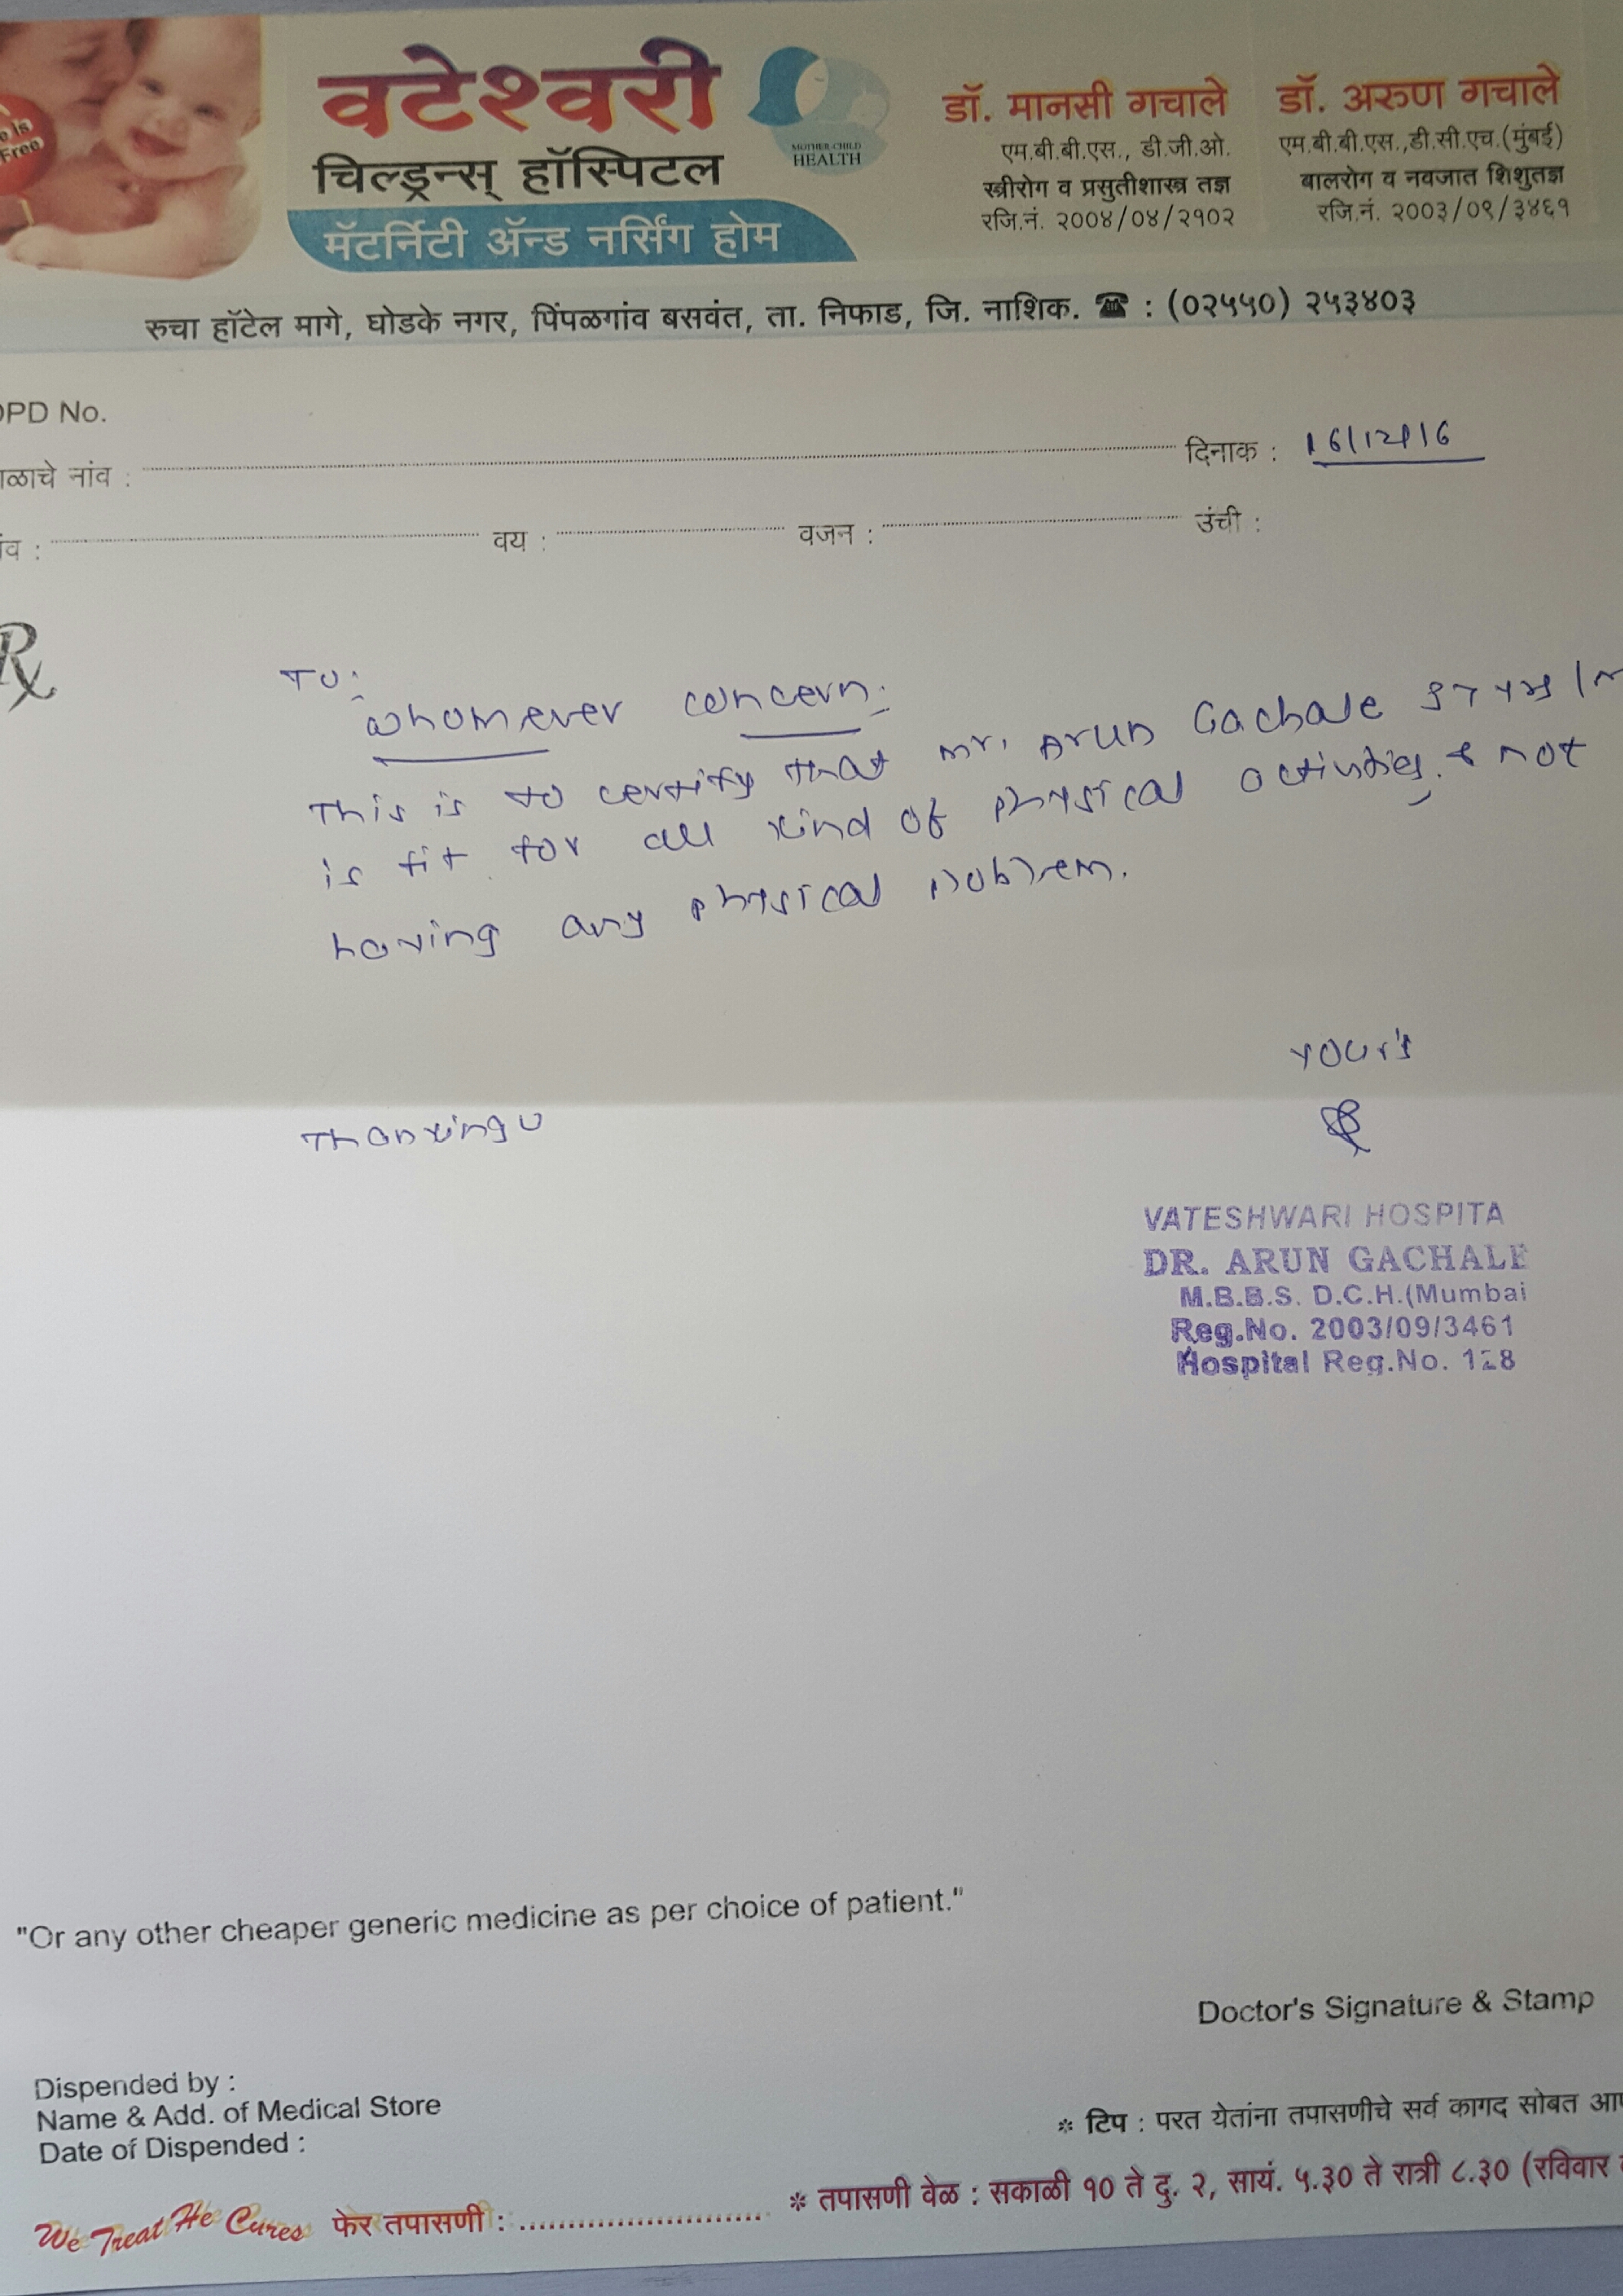 e is
Free
वटेश्वरी
चिल्ड्रन्स् हॉस्पिटल
मॅटर्निटी ॲन्ड नर्सिंग होम
MOTHER-CHILD
HEALTH
डॉ. मानसी गचाले
एम.बी.बी.एस., डी.जी.ओ.
स्त्रीरोग व प्रसुतीशास्त्र तज्ञ
रजि.नं. २००४/०४/२१०२
डॉ. अरुण गचाले
एम.बी.बी.एस.,डी.सी.एच.(मुंबई)
बालरोग व नवजात शिशुतज्ञ
रजि.नं. २००३/०९/३४६१
रुचा हॉटेल मागे, घोडके नगर, पिंपळगांव बसवंत, ता. निफाड, जि. नाशिक. ☎ : (०२५५०) २५३४०३
OPD No.
ळाचे नांव : दिनाक : 16/12/16
ांव : वय : वजन : उंची :
Rx
TO:
whomever concern:
This is to certify that mr. Arun Gachale 37 yrs/m
is fit for all kind of physical activities. & not
having any physical problem.
Your's
Thanking u
VATESHWARI HOSPITA
DR. ARUN GACHALE
M.B.B.S. D.C.H.(Mumbai
Reg.No. 2003/09/3461
Hospital Reg.No. 128
"Or any other cheaper generic medicine as per choice of patient."
Doctor's Signature & Stamp
Dispended by :
Name & Add. of Medical Store
Date of Dispended :
* टिप : परत येतांना तपासणीचे सर्व कागद सोबत आ
* तपासणी वेळ : सकाळी १० ते दु. २, सायं. ५.३० ते रात्री ८.३० (रविवार
We Treat He Cures फेर तपासणी : ..........................